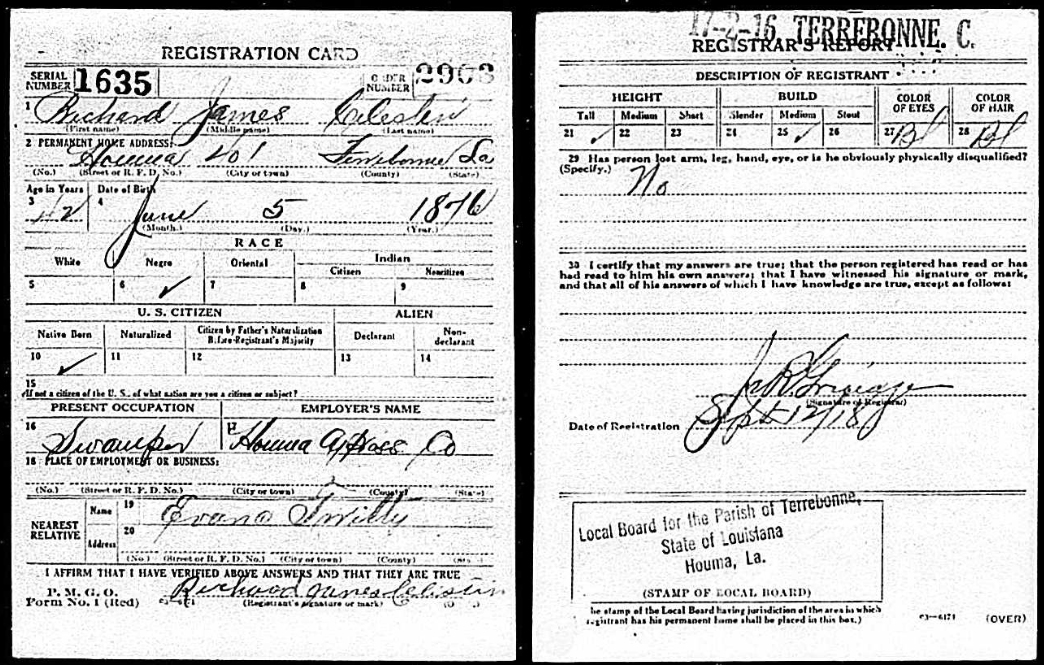 REGISTRATION CARD
SERIAL NUMBER 1635
ORDER NUMBER 2903
1 Richard James Celestin
(First name) (Middle name) (Last name)
2 PERMANENT HOME ADDRESS:
Houma 401 Terrebonne La
(No.) (Street or R. F. D. No.) (City or town) (County) (State)
Age in Years Date of Birth
3 42 4 June 5 1876
(Month.) (Day.) (Year.)
RACE
White Negro Oriental Indian
Citizen Noncitizen
5 6 ✓ 7 8 9
U. S. CITIZEN ALIEN
Native Born Naturalized Citizen by Father's Naturalization Before Registrant's Majority Declarant Non-declarant
10 ✓ 11 12 13 14
15
If not a citizen of the U. S., of what nation are you a citizen or subject?
PRESENT OCCUPATION EMPLOYER'S NAME
16 Swamper 17 Houma Co
18 PLACE OF EMPLOYMENT OR BUSINESS:
(No.) (Street or R. F. D. No.) (City or town) (County) (State)
NEAREST RELATIVE
Name 19
Address 20
(No.) (Street or R. F. D. No.) (City or town) (County) (State)
I AFFIRM THAT I HAVE VERIFIED ABOVE ANSWERS AND THAT THEY ARE TRUE
P. M. G. O.
Form No. 1 (Red) Richard James Celestin
(Registrant's signature or mark)
17-2-16 TERREBONNE. C.
REGISTRAR'S REPORT
DESCRIPTION OF REGISTRANT
HEIGHT BUILD COLOR OF EYES COLOR OF HAIR
Tall Medium Short Slender Medium Stout
21 ✓ 22 23 24 25 ✓ 26 27 Bl 28 Bl
29 Has person lost arm, leg, hand, eye, or is he obviously physically disqualified?
(Specify.) No
30 I certify that my answers are true; that the person registered has read or has
had read to him his own answers; that I have witnessed his signature or mark,
and that all of his answers of which I have knowledge are true, except as follows:
(Signature of Registrar)
Date of Registration Sept 12/18
Local Board for the Parish of Terrebonne,
State of Louisiana
Houma, La.
(STAMP OF LOCAL BOARD)
he stamp of the Local Board having jurisdiction of the area in which
registrant has his permanent home shall be placed in this box.)
03—6171 (OVER)